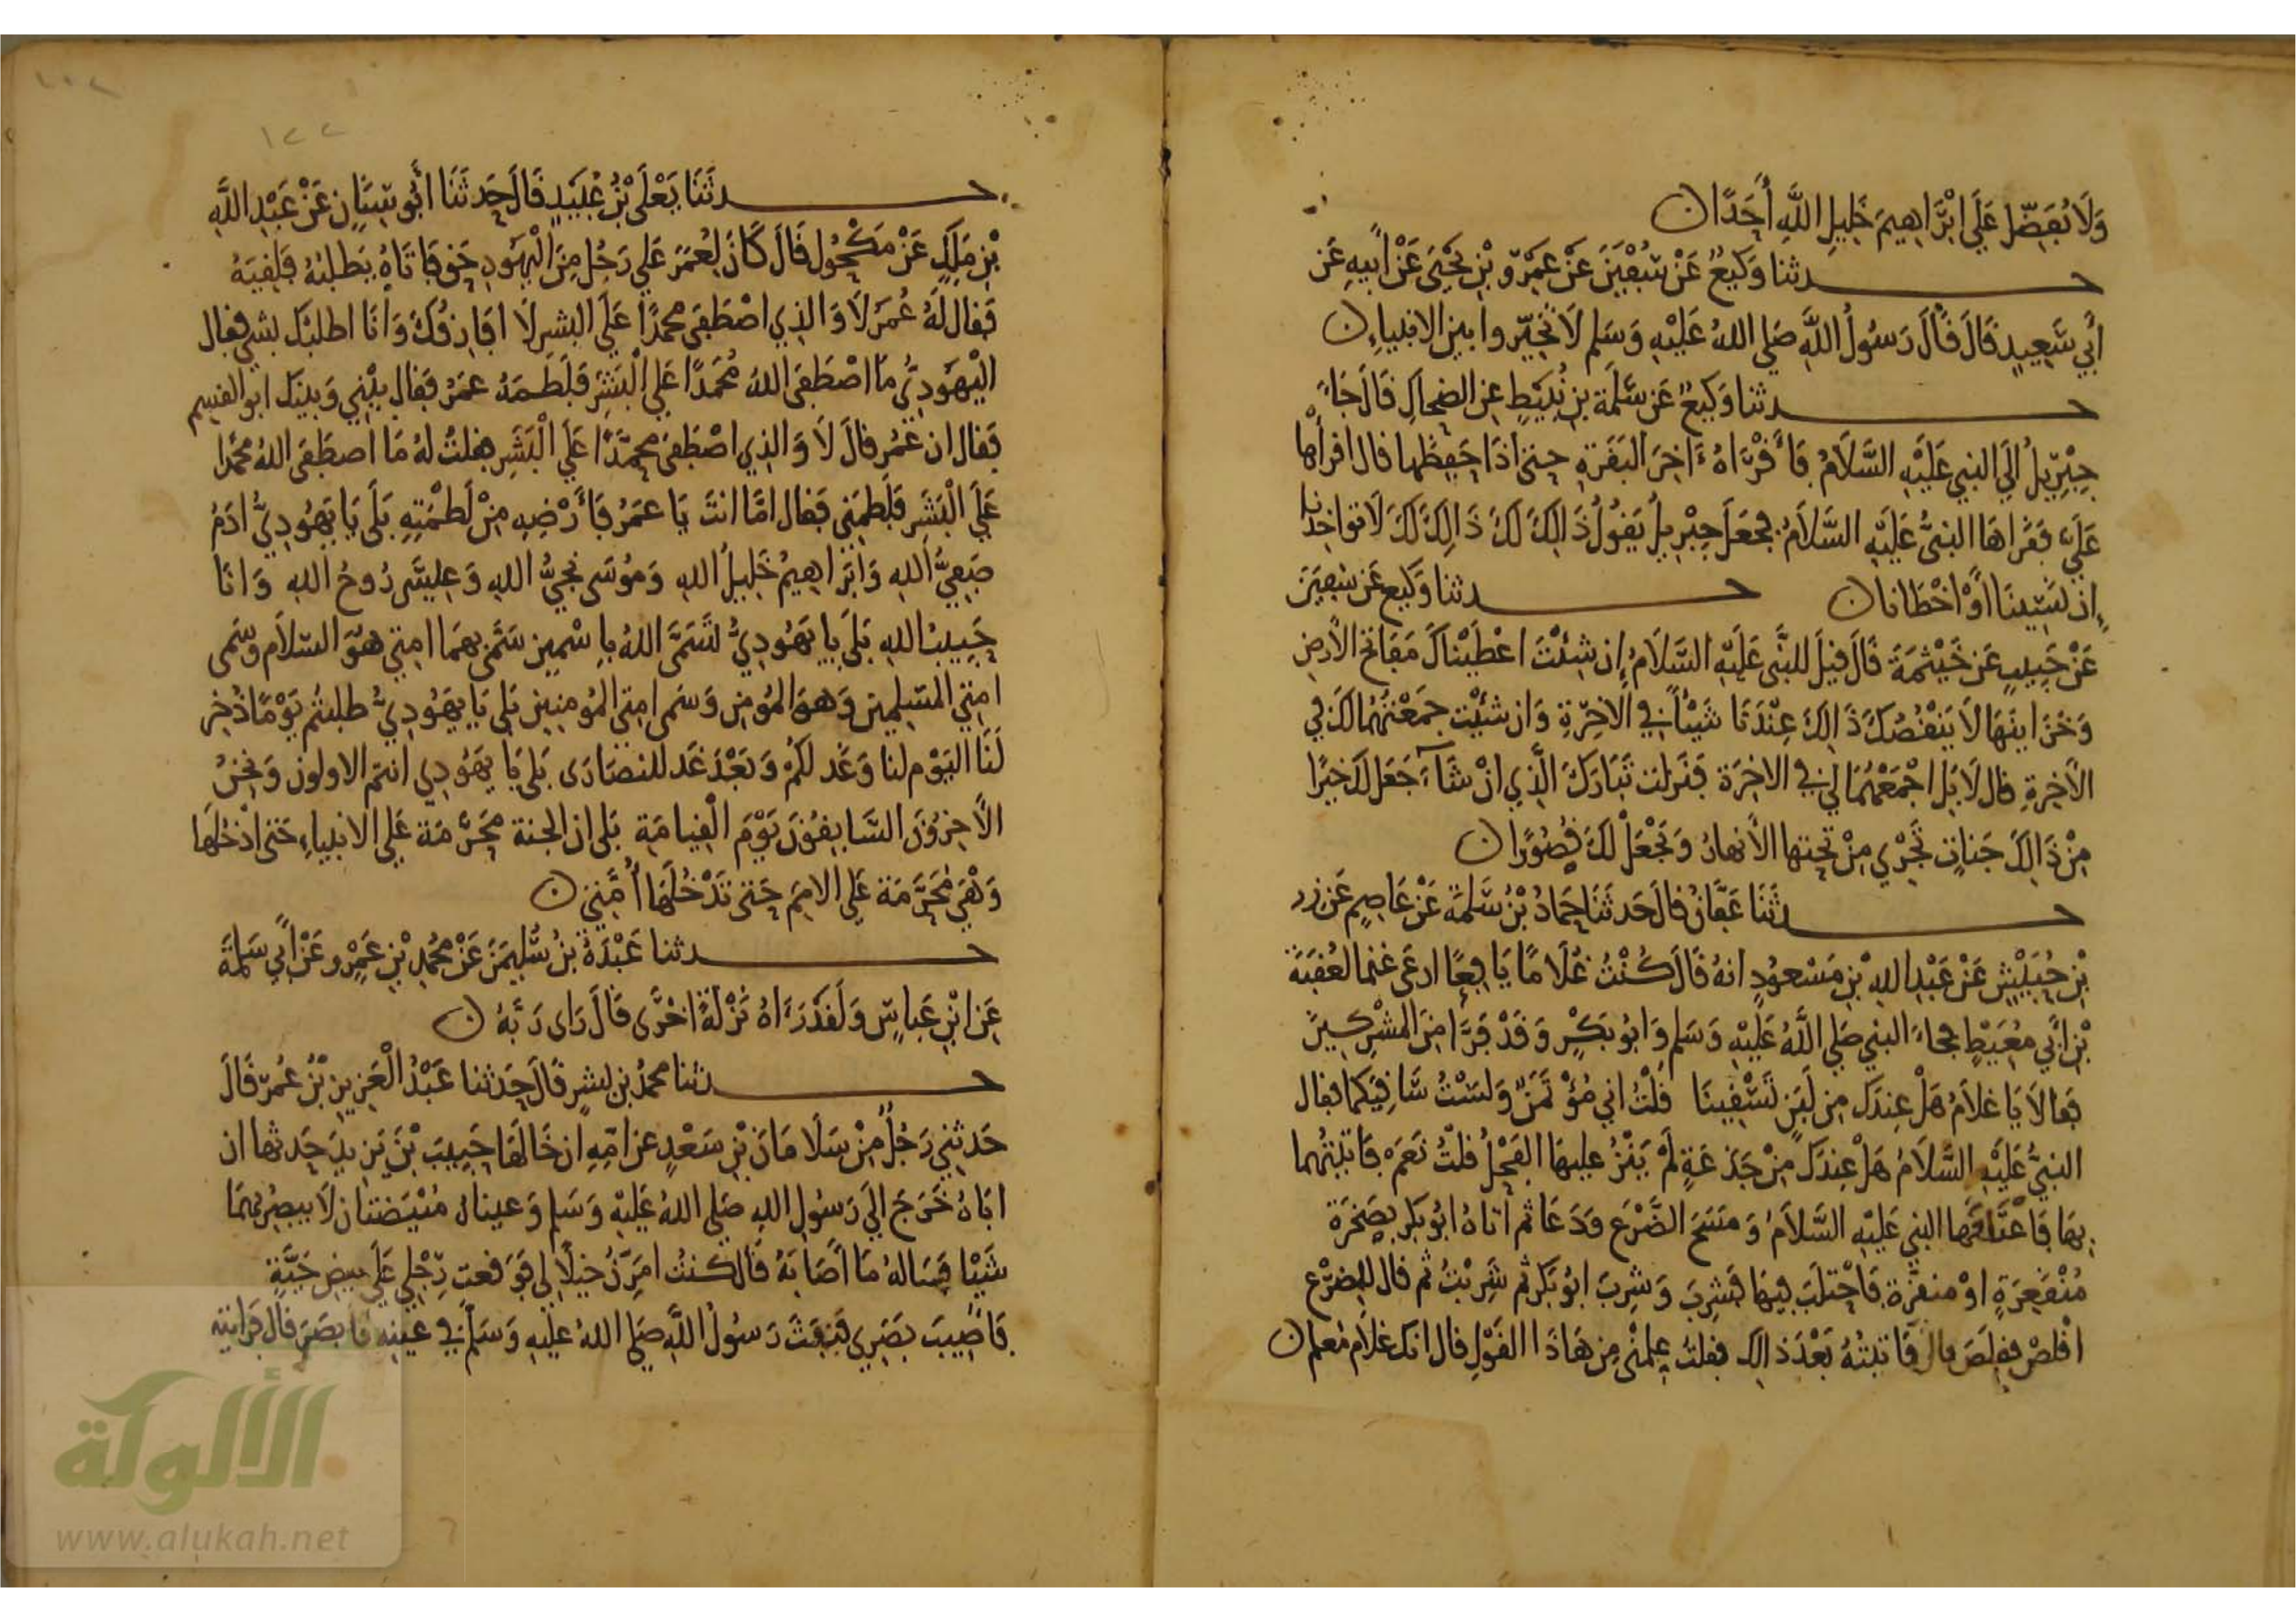 وَلَا يُفَضِّل عَلَى إِبْرَاهِيمَ خَلِيلِ اللَّهِ أَحَدًا ن
حدثنا وَكِيعٌ عَنْ سُفْيَنَ عَنْ عَمْرِو بْنِ يَحْيَى عَنْ أَبِيهِ عَن
أَبِي سَعِيدٍ قَالَ قَالَ رَسُولُ اللَّهِ صَلى اللهُ عَلَيْهِ وَسَلم لَا تُخَيِّروا بين الانبياءِ ن
حدثنا وَكِيعٌ عَن سَلَمَةَ بنِ نُبَيْطٍ عن الضحاكِ قَالَ جَاءَ
جِبْرِيلُ إلَى النبي عَلَيْهِ السَّلَامُ فَأَقْرَاهُ ءَاخِرَ البَقَرَةِ حتى اذَا حَفِظَها قال اقرأها
عَلَيَّ فَقَرَاهَا النبيُّ عَلَيْهِ السَّلَامُ فجَعَلَ جِبْرِيلُ يَقُولُ ذَالِكَ لَكَ ذَالِكَ لَكَ لَا تواخذنا
ان نَسِينَا أَوْ اخْطَانا ن حدثنا وَكِيع عَن سفيَنَ
عَنْ حَبِيبٍ عَن خَيْثمَةَ قَالَ قيلَ للنَّبى عَلَيْهِ السَّلَامُ إن شِئْتَ اعْطَيْنَاكَ مَفَاتحَ الأرضِ
وَخَزَاينَهَا لَا يَنْقُصُكَ ذَالِكَ عِنْدَنَا شَيْئًا في الآخِرَةِ وَان شئْت جمَعْتَهُمَا لَكَ في
الآخِرَةِ قال لَا بَل اجْمَعْهُمَا لي في الاخِرَة فَنَزلت تَبَارَكَ الَّذِي انْ شَآءَ جَعَل لَكَ خيْرًا
مِنْ ذَالِكَ جَناتٍ تَجْرِي مِنْ تَحْتِها الأَنهَارُ وَيَجْعَلْ لَكَ قُصُورًا ن
حدثَنَا عَفَّانُ قالَ حَدثَنَا حَمَادُ بْنُ سَلَمَةَ عَنْ عَاصِمٍ عَن زر
بْنِ حُبَيْشٍ عَنْ عَبْدِ اللهِ بْنِ مَسْعُودٍ انهُ قَالَ كُنْتُ غُلَامًا يَافِعًا ارعَى غنما لعُقبَةَ
بْنِ أَبِي مُعَيْطٍ فجاءَ النبي صَلى اللَّهُ عَلَيْهِ وَسَلم وَابُو بَكْرٍ وَقَدْ فَرَّا مِنَ المُشْرِكِينَ
فَقالَا يَا غلَامُ هَلْ عِندَكَ مِن لَبَنٍ تَسْقِينَا قُلْتُ اني مُؤْتَمَنٌ وَلَسْتُ سَاقِيَكُما فقال
النبيُّ عَلَيْهِ السَّلَامُ هَلْ عِندَكَ مِنْ جَذَعَةٍ لَمْ يَنْزُ عليهَا الفَحْلُ قلْتُ نَعَمْ فَاتيتُهُما
بهَا فَاعْتَقَلَهَا النبي عَلَيْهِ السَّلَامُ وَمَسَحَ الضَّرْعَ وَدَعَا ثم أتاهُ ابُو بَكر بصَخرَة
مُنْقَعِرَةٍ اوْ منقرَة فَاحْتلَبَ فيهَا فشربَ وَشربَ ابُو بَكر ثم شَرِبْتُ ثم قال للضرْع
اقْلصْ فقلَصَ قال فَاتيْتُهُ بَعْدَ ذالِك فقلتُ علِمْني مِن هَاذَا القَوْلِ قال انك غلَام مُعلم ن
حدثَنَا يَعْلَى بْنُ عُبَيْدٍ قَالَ حَدثَنَا أَبُو سِنَانٍ عَنْ عَبْدِ اللَّهِ
بْنِ مَلِكٍ عَنْ مَكْحُولٍ قَالَ كَانَ لِعُمَرَ عَلى رَجُلٍ مِنَ الْيَهُودِ حَق فَاتَاهُ يَطْلبُهُ فَلَقِيَهُ
فَقال لَهُ عُمَرُ لَا وَالذِي اصْطَفَى محمدًا عَلَى البَشرِ لَا افَارِقُكَ وَانَا اطلبُكَ بشي فقال
الْيَهُودِيُّ مَا اصْطَفَى اللهُ مُحَمدًا عَلى الْبَشَرِ فَلَطَمَهُ عمَرُ فَقال بيْنِي وَبينَكَ ابو القسِم
فَقال ان عُمَر قالَ لَا وَالذِي اصْطَفَى محمَّدًا عَلَى الْبَشَرِ فقلتُ لهُ مَا اصطَفَى اللهُ محمدا
عَلَى الْبَشَرِ فَلَطَمَنى فَقال امَّا انتَ يَا عمَرُ فَأَرْضِهِ مِنْ لَطْمَتِهِ بَلَى يَا يَهُودِيُّ ادَمُ
صَفِيُّ اللهِ وَابْرَاهِيمُ خَلِيلُ اللهِ وَمُوسَى نَجِيُّ اللهِ وَعِيسَى رُوحُ اللهِ وَانَا
حَبِيبُ اللهِ بَلَى يَا يَهُودِيُّ تَسَمَّى اللهُ بِاسْمينِ سَمَّى بهمَا امتي هوَ السَّلَام وسَمى
امتي المسْلمِين وَهوَ المُؤمن وَسمى امتى المُومنِين بَلى يَا يَهُودِيُّ طلبتُم يَوْمًا ذُخِر
لَنَا اليَوْم لنا وَغَد لكُمْ وَبَعْدَ غَد للنصَارَى بَلى يَا يهُودِي انتم الاولون وَنحْنُ
الآخِرُونَ السَّابِقُونَ يَوْمَ الْقِيامَةِ بَلى ان الجنة مُحَرَّمَة عَلى الانبِياءِ حَتى ادْخُلَهَا
وَهْيَ مُحَرَّمَة عَلى الامَم حَتى تَدْخُلَهَا أُمَّتي ن
حدثنا عَبْدَةُ بنُ سُلَيْمَنَ عَنْ مُحَمدِ بْنِ عَمْرٍو عَنْ أَبي سَلمَةَ
عَن ابْنِ عَبَاسٍ وَلَقَدْ رَءَاهُ نَزْلَةً اخْرَى قَالَ رَاى رَبَّهُ ن
حدثنا محمدُ بن بِشرٍ قالَ حَدثنا عَبْدُ الْعَزِيزِ بْنُ عُمَرَ قَالَ
حَدثنِي رَجُلٌ مِنْ سَلَامَانَ بْنِ سَعْدٍ عن امّهِ ان خَالَهَا حَبِيبَ بْنَ يَزِيدَ حَدثها ان
ابَاهُ خَرَجَ الَى رَسُولِ اللهِ صَلى اللهُ عَلَيْهِ وَسَلم وَعيناهُ مُبْيَضتَان لَا يبصِرُ بهمَا
شَيْئا فَسَالَهُ مَا أَصَابَهُ قَالَ كنتُ امَرِّنُ خيلًا لي فَوَقعت رِجْلِي عَلَى بيض حَيَّةٍ
فَأُصِيبَ بَصَرِي فَنفَثَ رَسُولُ اللَّهِ صَلى اللهُ عَلَيْهِ وَسَلَّمَ في عينيهِ فَابصَرَ قال فَرَايته
الألوكة
www.alukah.net